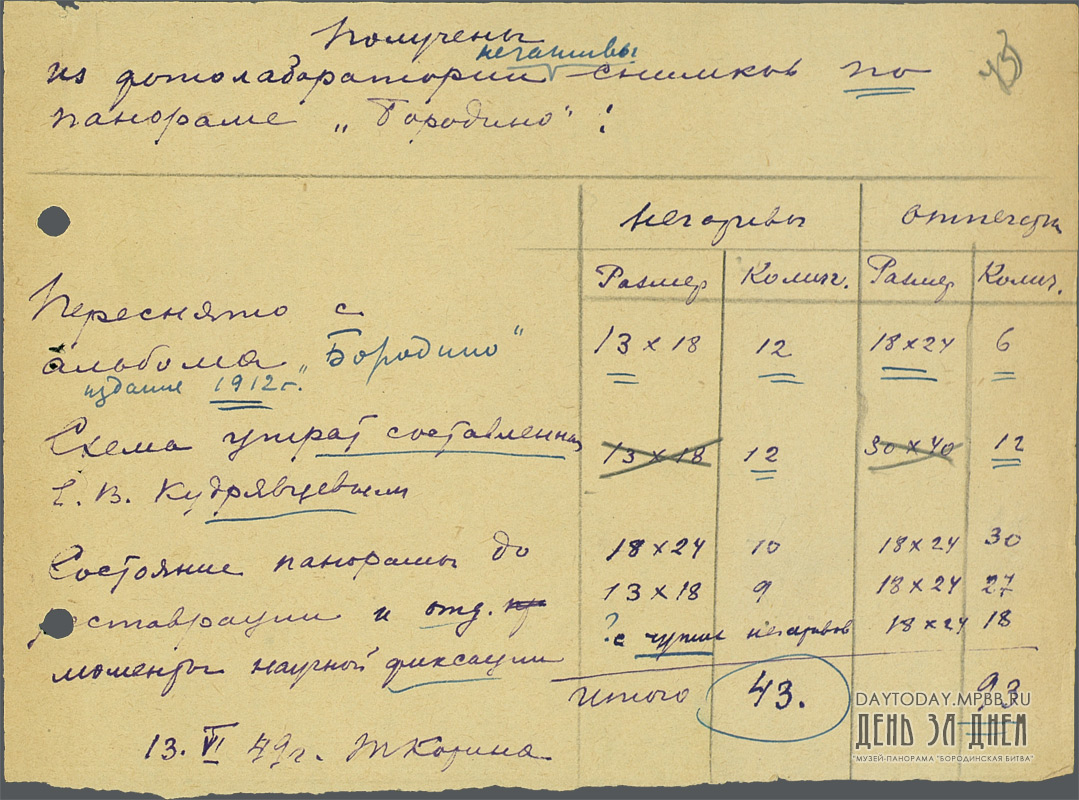 Получены
негативы
из фотолаборатории снимков по
панораме „Бородино“:
43
негативы отпечатки
Размер Колич. Размер Колич.
Переснято с
альбома „Бородино“ 13 х 18 12 18 х 24 6
издание 1912 г.
Схема утрат составленная 13 х 18 12 30 х 40 12
Е. В. Кудрявцевым
Состояние панорамы до 18 х 24 10 18 х 24 30
реставрации и отд. 13 х 18 9 18 х 24 27
? с чужих негативов 18 х 24 18
моменты научной фиксации
Итого 43. 93
13. VI 49 г. Корина
DAYTODAY.MPBB.RU
ДЕНЬ ЗА ДНЕМ
"МУЗЕЙ-ПАНОРАМА "БОРОДИНСКАЯ БИТВА"